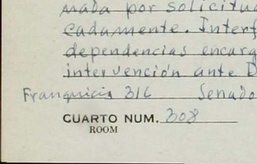 mada por solicitu
cadamente. Interf
dependencias encarg
intervención ante D
Franquicia 316 Senado
CUARTO NUM. 308
ROOM